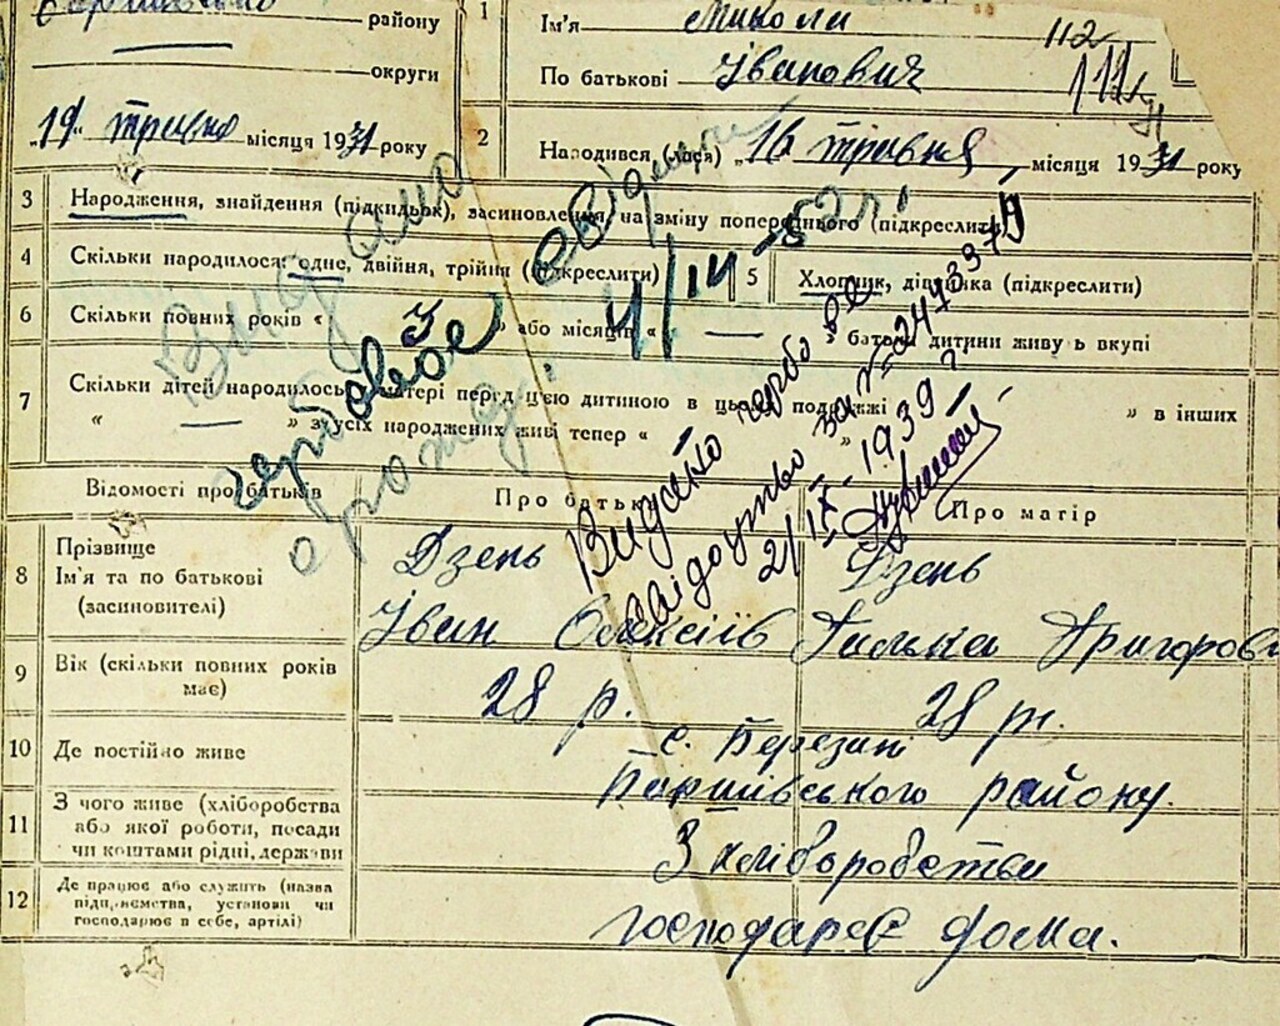 району
округи
„19“ травня місяця 1931 року
1
Ім'я Миколи
112
По батькові Іванович
111
2
Народився (лася) „16 травня, місяця 1931 року
3 Народження, знайдення (підкидьок), засиновлення, на зміну попереднього (підкреслити)
4 Скільки народилося: одне, двійня, трійня (підкреслити) 5 Хлопчик, дівчинка (підкреслити)
6 Скільки повних років « 3 » або місяців « — » батьки дитини живуть вкупі
7 Скільки дітей народилось у матері перед цією дитиною в цьому подружжі » в інших
« — » з усіх народжених живі тепер « »
Видано
гербовое свідоцтво
о рожд.
4/IV-52 г.
Видано гербове
свідоцтво за №
2/IX-1939 г.
Відомості про батьків Про батька Про матір
8 Прізвище
Ім'я та по батькові
(засиновителі)
Дзень
Іван Олексіїв
Дзень
Григорові
9 Вік (скільки повних років
має)
28 р. 28 р.
10 Де постійно живе
с. Березані
району.
11 З чого живе (хліборобства
або якої роботи, посади
чи коштами рідні, держави
З хліборобства
12 Де працює або служить (назва
підприємства, установи чи
господарює в себе, артілі)
господарює дома.